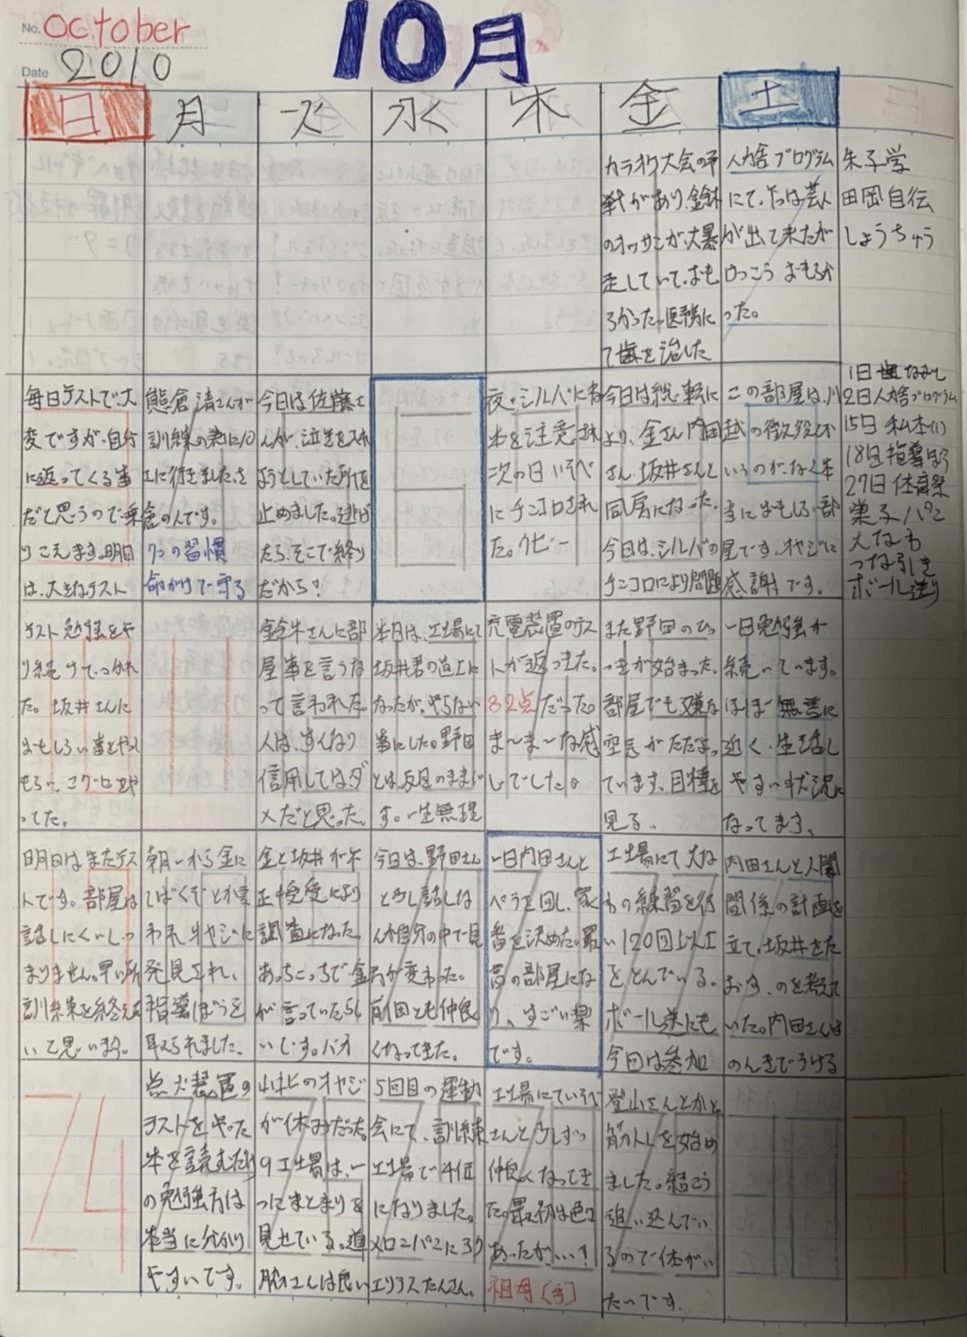 No. October
Date 2010
10月
日 月 火 水 木 金 土
カラオケ大会の予
戦があり、鈴木
のオッサンが大暴
走していて、おも
ろかった。医務に
て歯を治した
人舎プログラム
にて、たっは芸人
が出て来たが
けっこう おもろか
った。
朱子学
田岡自伝
しょうちゅう
毎日テストで大
変ですが、自分
に返ってくる事
だと思うので乗
りこえます。明日
は、大きなテスト
熊倉清さんが
訓練の為に10
工に行きました。さ
倉の人です。
7つの習慣
命がけで守る
今日は佐藤さ
んが、泣きを入れ
ようとしていた所を
止めました。逃げ
たら、そこで終り
だから!
夜、シルバに
次の日
にチンコロされ
た。クビー
今日は総転に
より、金さん内田
さん、坂井さんと
同房になった。
今日は、シルバの
チンコロにより問題
この部屋は、川
越の徴役とか
いうのがなく本
当におもしろい部
屋です。オヤジに
感謝です。
1日 歯
2日 人舎プログラム
15日 私本(1)
18日 指導ぼう
27日 体育祭
菓子パン
大なわ
つな引き
ボール送り
テスト勉強をや
り続けて、つかれ
た。坂井さんに
おもしろい事をやって
もらい、
ってた。
鈴木さんに部
屋事を言うな
って言われた。
人は、すぐなり
信用してはダ
メだと思った。
本日は、工場にて
坂井君の
なったが、やらない
事にした。野田
とは、反目のままで
す。一生無理
充電装置のテス
トが返ってきた。
82点だった。
ま〜ま〜な感
じでした。
また野田のひ
つきが始まった。
部屋でも嫌な
空気がただよっ
ています。目標を
見る。
一日勉強が
続いています。
ほぼ無言に
近く、生活し
やすい状況に
なってます。
明日はまたテス
トです。部屋は
話しにくいし、つ
まりません。早い所
訓練を終えた
いと思います。
朝いから金に
しばくぞとか言
われ、オヤジに
発見され、
指導ぼうを
耳又られました。
金と坂井が不
正授受により
調査になった。
あっちこっちで金
が言っていたらし
いです。バカ
今日は、野田さん
と少し話しな
んか自分の中で見
方が変わった。
前回とも仲良
くなってきた。
一日内田さんと
ペラを回し、家
番を決めた。最
高の部屋にな
り、すごい楽
です。
工場にて大な
わの練習を行
い120回以上
をとんでいる。
ボール送にも
今回は参加
内田さんと人間
関係の計画を
立て、坂井をた
おす、のを考えて
いた。内田さんは
のんきでうける
点火装置の
テストをやった
本を読むだけ
の勉強方は
本当に分かり
やすいです。
山北のオヤジ
が休みだった
9工場は、一
つにまとまりを
見せている。道
さんは良い
5回目の運動
会にて、訓練
工場で4位
になりました。
メロンパンにマリ
たくさん。
工場にていろいろ
さんと少しずつ
仲良くなってき
た。最初は色々
あったが...!
祖母(手)
登山さんとかと
筋トレを始め
ました。結こう
追い込んでい
るので体がい
たいです。